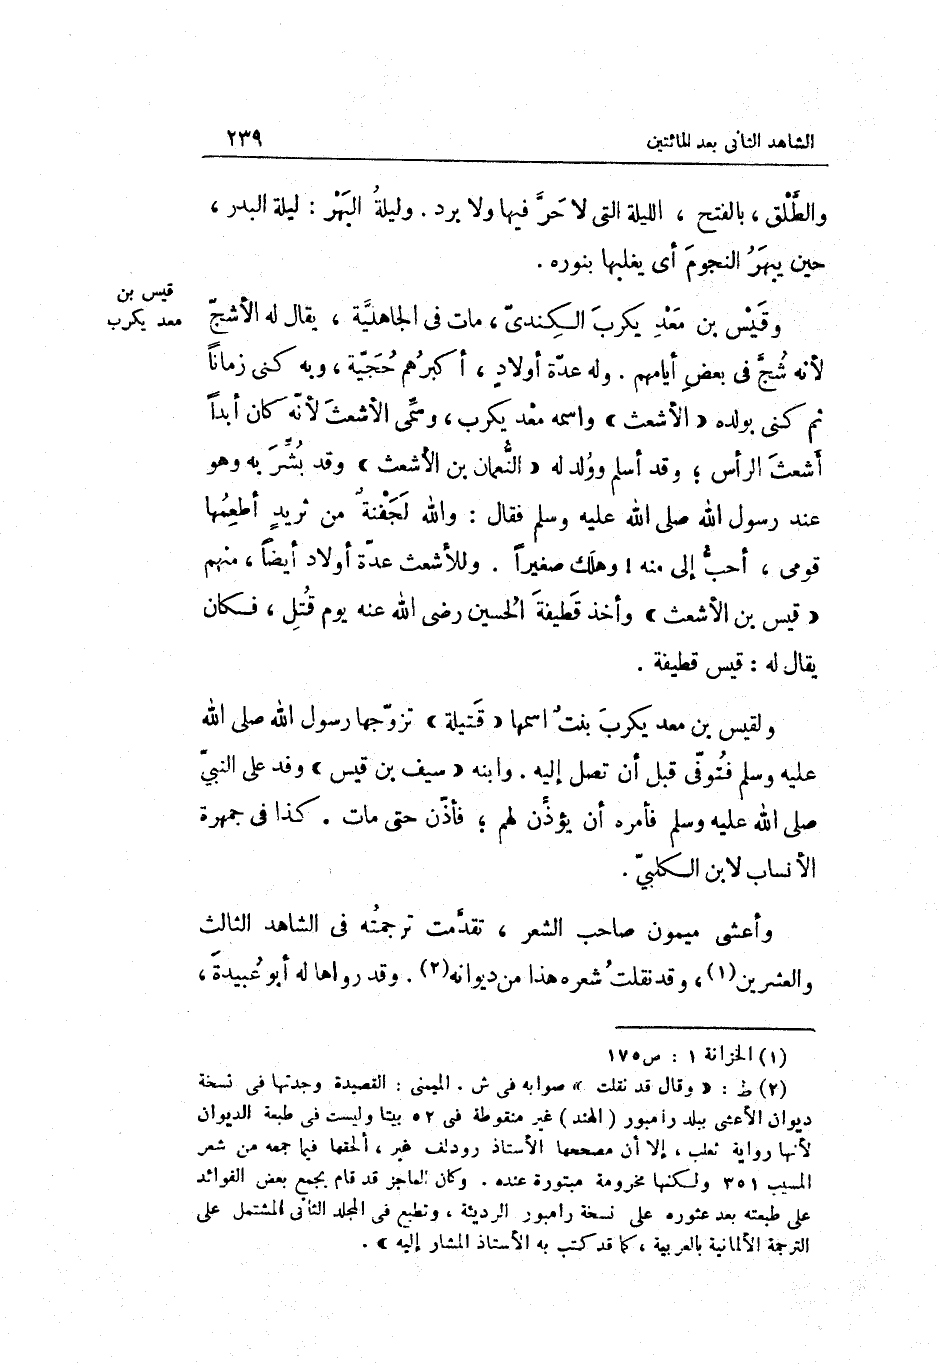 الشاهد الثانى بعد المائتين ٢٣٩
والطَّلْق ، بالفتح ، الليلة التى لا حَرَّ فيها ولا برد . وليلةُ البَهْر : ليلة البدر ،
حين يبهَرُ النجومَ أى يغلبها بنوره .
قيس بن
معد يكرب
وقَيْس بن مَعْدِ يكربَ الكِنديّ ، مات فى الجاهليَّة ، يقال له الأشجّ
لأنه شُجَّ فى بعضِ أيامهم . وله عدّة أولادٍ ، أكبرُهم حُجَيّة ، وبه كنى زماناً
ثم كنى بولده « الأشعث » واسمه معْد يكرب ، وسمِّى الأشعثَ لأنّه كان أبداً
أشعثَ الرأس ؛ وقد أسلم ووُلد له « النُّعمان بن الأشعث » وقد بُشِّرَ به وهو
عند رسول الله صلى الله عليه وسلم فقال : والله لَجَفْنةٌ من ثريدٍ أطعِمُها
قومى ، أحبُّ إلى منه ! وهلَك صغيراً . وللأشعث عدّة أولاد أيضاً ، منهم
« قيس بن الأشعث » وأخذ قَطيفةَ الحسين رضى الله عنه يوم قُتل ، فكان
يقال له : قيس قطيفة .
ولقيس بن معد يكربَ بنتٌ اسمها « قَتيلة » تزوّجها رسول الله صلى الله
عليه وسلم فتُوفّى قبل أن تصل إليه . وابنه « سيف بن قيس » وفد على النبيّ
صلى الله عليه وسلم فأمره أن يؤذِّن لهم ؛ فأذّن حتى مات . كذا فى جمهرة
الأنساب لابن الكلبيّ .
وأعشى ميمون صاحب الشعر ، تقدَّمت ترجمتُه فى الشاهد الثالث
والعشرين(١) ، وقد نقلتُ شعره هذا من ديوانه(٢) . وقد رواها له أبو عُبيدةَ ،
(١) الخزانة ١ : ص١٧٥
(٢) ط : « وقال قد نقلت » صوابه فى ش . الميمنى : القصيدة وجدتها فى نسخة
ديوان الأعشى ببلد رامبور ( الهند ) غير منقوطة فى ٥٢ بيتا وليست فى طبعة الديوان
لأنها رواية ثعلب ، إلا أن مصححها الأستاذ رودلف غير ، ألحقها فيما جمعه من شعر
المسيب ٣٥١ ولكنها مخرومة مبتورة عنده . وكان العاجز قد قام بجمع بعض الفوائد
على طبعته بعد عثوره على نسخة رامبور الرديئة ، وتطبع فى المجلد الثانى المشتمل على
الترجمة الألمانية بالعربية ، كما قد كتب به الأستاذ المشار إليه » .